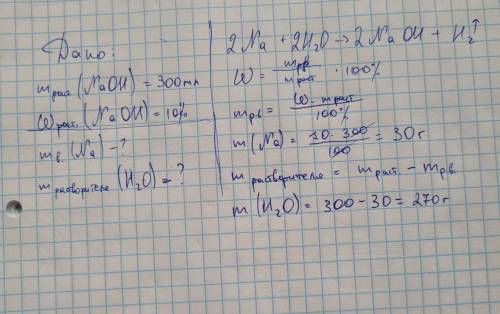 Дано:
m раст. (NaOH) = 300 мл
ω раст. (NaOH) = 10%
m в. (Na) - ?
m растворителя (H₂O) = ?
2Na + 2H₂O → 2NaOH + H₂↑
ω = m р.в. / m раст. · 100%
m р.в. = ω · m раст. / 100%
m (Na) = 10 · 300 / 100 = 30 г
m растворителя = m раст. - m р.в.
m (H₂O) = 300 - 30 = 270 г